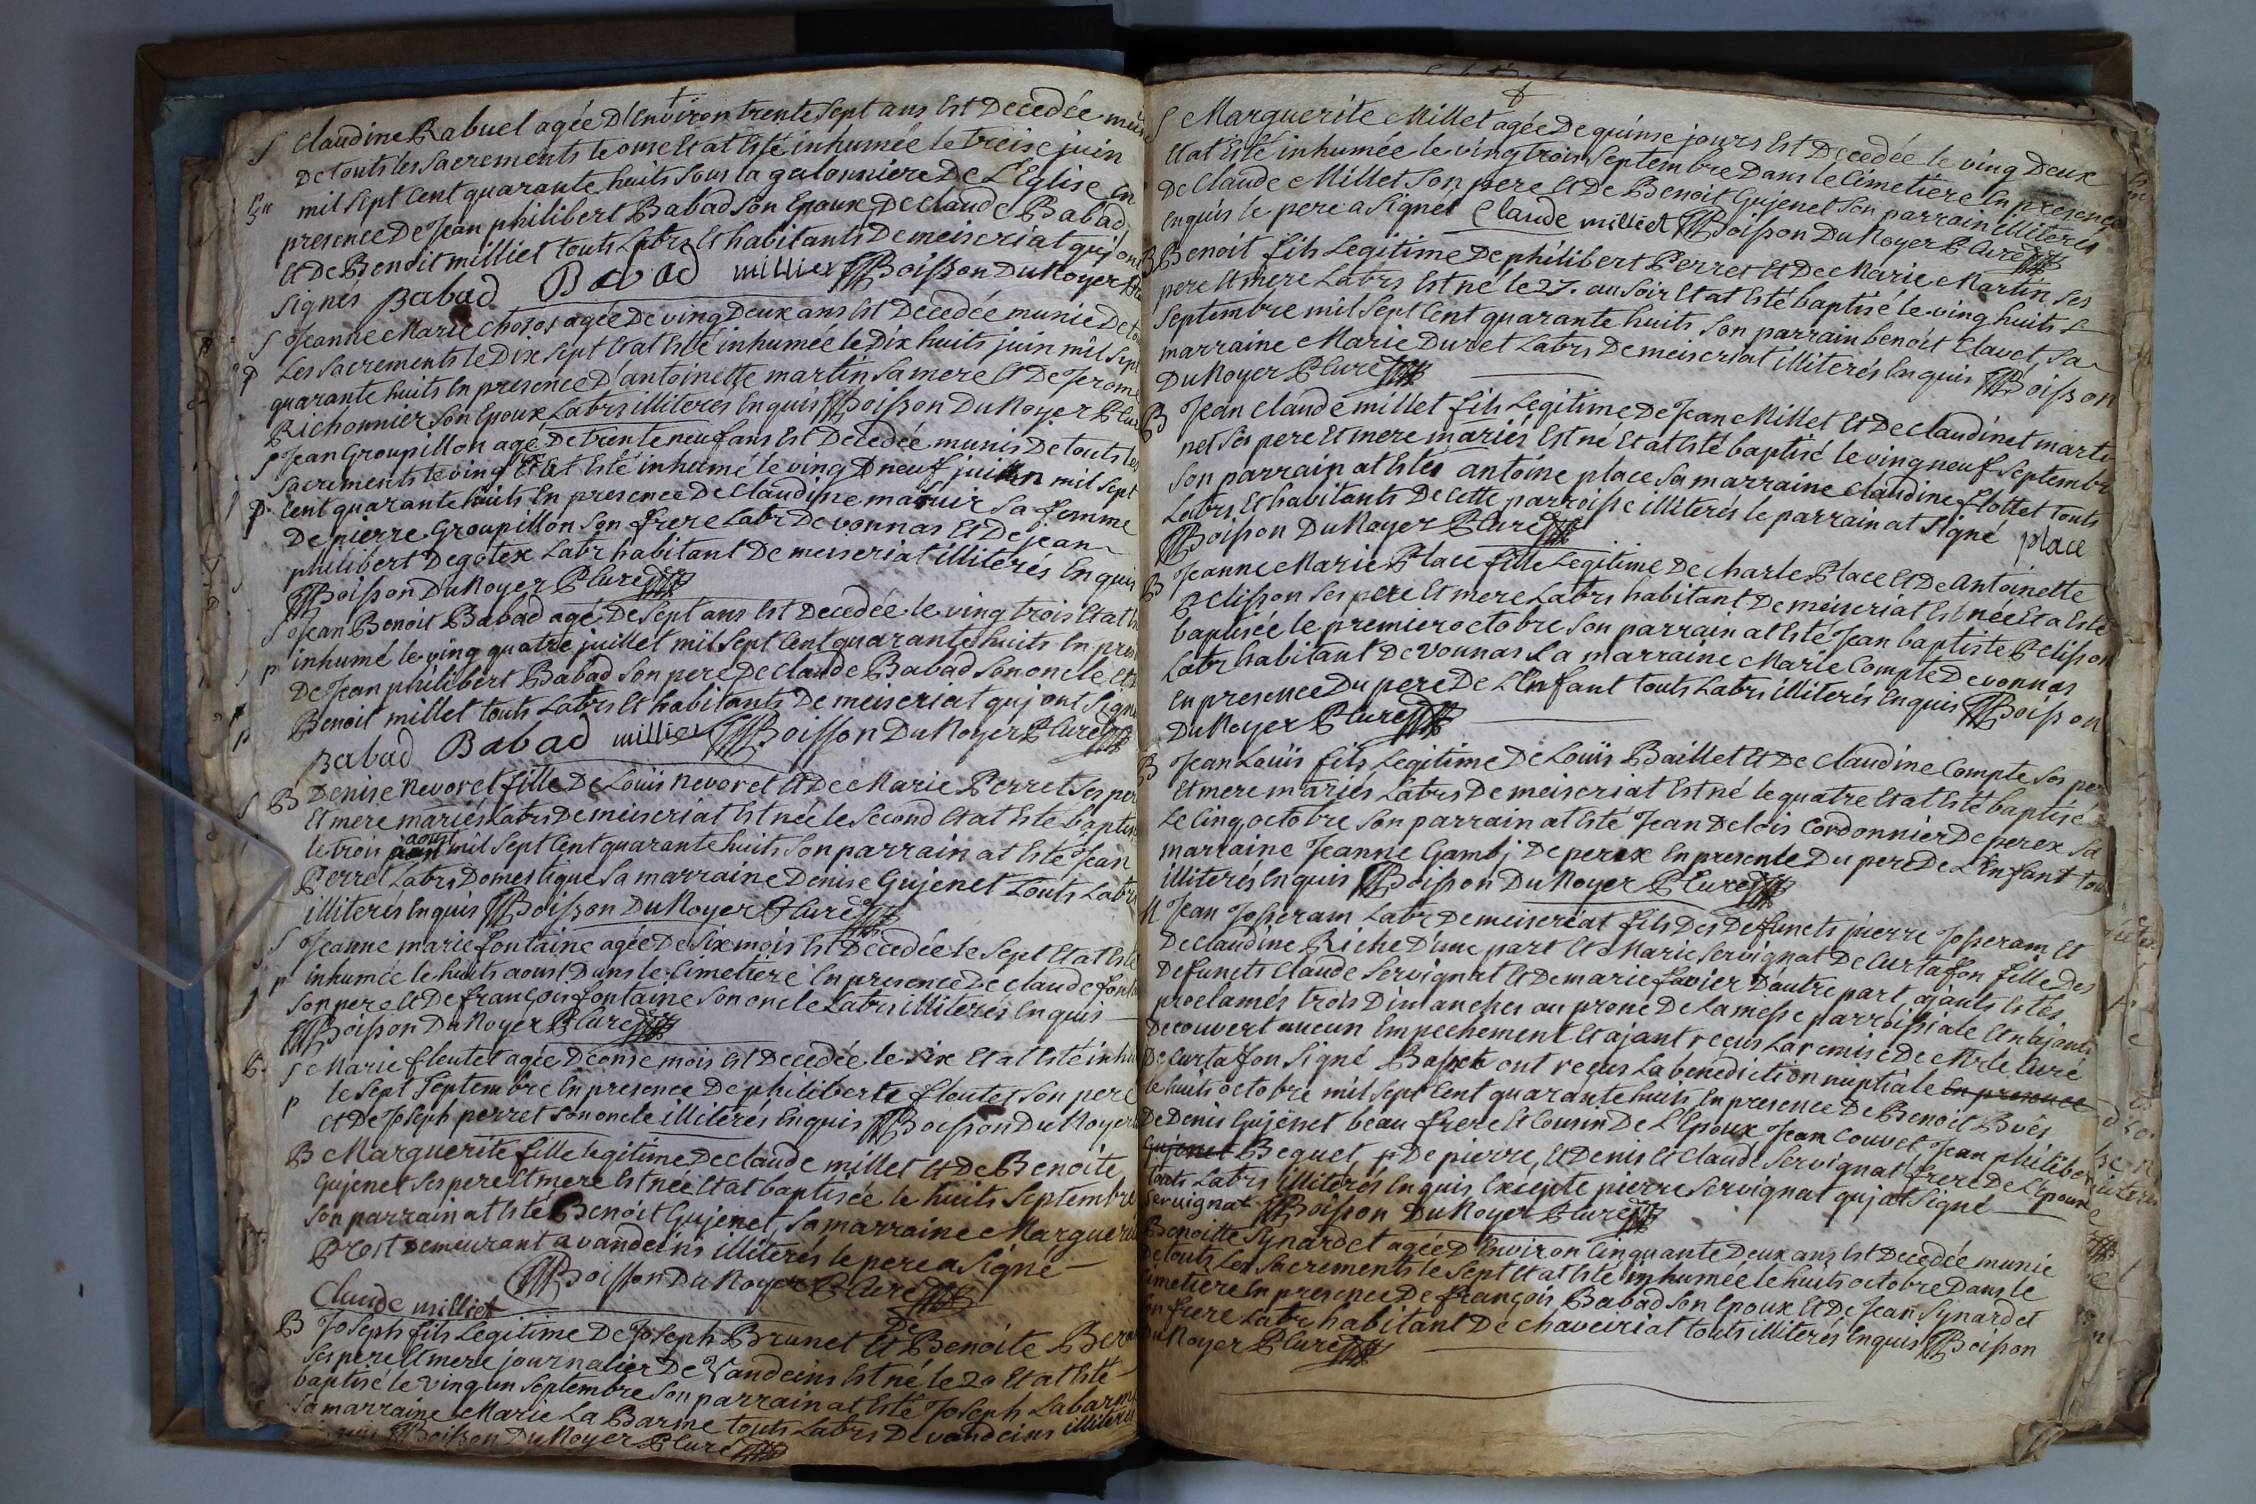 S Claudine Rabuel agée D'Environ trente Sept ans Est Decedée munie
De touts les Sacrements le onse Et at Esté inhumée le treise juin
mil Sept Cent quarante huits Sous la galonniere De L'Eglise En
presence De Jean philibert Babad Son Epoux, De Claude Babad
Et De Benoit milliet touts Labrs Et habitants De meiseriat quj ont
Signés Babad Babad millier Boisson Du Noyer
S Jeanne Marie Chosos agée De ving Deux ans Est Decedée munie De tou
Les Sacrements le Dix Sept Et at Esté inhumée le Dix huits juin mil Sept
quarante huits En presence D'antoinette martin Sa mere Et De Jerome
Richonnier Son Epoux Labrs illiterés Enquis Boisson Du Noyer P Cur
S Jean Groupillon agé De trente neuf ans Est Decedée munis De touts les
Sacrements le ving Et at Esté inhumé le ving neuf juin mil Sept
p Cent quarante huits En presence De Claudine Sa femme
De pierre Groupillon Son frere Labr De vonnas Et De jean
philibert Degotex Labr habitant De meiseriat illiterés Enquis
Boisson Du Noyer P Curé
S Jean Benoit Babad agé De Sept ans Est Decedée le ving trois Et at E
p inhumé le ving quatre juillet mil Sept Cent quarante huits En prese
De Jean philibert Babad Son pere De Claude Babad Son oncle Et D
p Benoit millet touts Labrs Et habitants De meiseriat quj ont Signé
Babad Babad millier Boisson Du Noyer P Curé
S B Denise Nevoret fille De Louïs Nevoret Et De Marie Perret Ses per
Et mere mariés Labrs De meiseriat Est née le Second Et at Esté baptisé
le trois aoust mil Sept Cent quarante huits Son parrain at Esté Jean
Perret Labrs Domestique Sa marraine Denise Gujenet touts Labrs
illiterés Enquis Boisson Du Noyer P Curé
S Jeanne marie fontaine agée De Six mois Est Decedée le Sept Et at Esté
p inhumée le huits aoust Dans le Cimetiere En presence De Claude fonta
Son pere Et De françois fontaine Son oncle Labrs illiterés Enquis
Boisson Du Noyer P Curé
S Marie floutet agée D'eonse mois Est Decedée le Six Et at Esté inhu
p le Sept Septembre En presence De philiberte floutet Son pere
Et De Joseph perret Son oncle illiterés Enquis Boisson Du Noyer
B Marguerite fille legitime De Claude millet Et De Benoite
Gujenet Ses pere Et mere Est née Et at baptisée le huits Septembre
Son parrain at Esté Benoit Gujenet, Sa marraine Marguerit
Prost Demeurant a vandeins illiterés le pere a Signé
Boisson Du Noyer P Curé
Claude milliet
B Joseph fils Legitime De Joseph Brunet Et De Benoite Ber
Ses pere Et mere journalier De Vandeins Est né le 20 Et at Esté
baptisé le ving un Septembre Son parrain at Esté Joseph Labarme
Sa marraine Marie La Barme touts Labrs De vandeins illiterés
Boisson Du Noyer P Curé
S Marguerite Millet agée De quinse jours Est Decedée le ving Deux
Et at Esté inhumée le ving trois Septembre Dans le Cimetiere En presence
De Claude Millet Son pere Et De Benoit Gujenet Son parrain illiterés
Enquis le pere a Signer Claude milliet Boisson Du Noyer P Curé
B Benoit fils Legitime De philibert Perret Et De Marie Martin Ses
pere Et mere Labrs Est né le 27. au Soir Et at Esté baptisé le ving huits
Septembre mil Sept Cent quarante huits Son parrain benoit Clavet, Sa
marraine Marie Duret Labrs De meiseriat illiterés Enquis Boisson
Du Noyer P Curé
B Jean Claude millet fils Legitime De Jean Millet Et De Claudinet marti
net Ses pere Et mere mariés Est né Et at Esté baptisé le ving neuf Septembr
Son parrain at Estés antoine place Sa marraine Claudine flottet touts
Labrs Et habitants De Cette parroisse illiterés le parrain at Signé place
Boisson Du Noyer P Curé
B Jeanne Marie Place fille Legitime De Charle Place Et De Antoinette
Pelisson Ses pere Et mere Labrs habitant De meiseriat Est née Et a Esté
baptisée le premier octobre Son parrain at Esté Jean baptiste Pelisson
Labr habitant De Vonnas La marraine Marie Compte De vonnas
En presence Du pere De L'Enfant touts Labrs illiterés Enquis Boisson
Du Noyer P Curé
B Jean Louïs fils Legitime De Louïs Baillet Et De Claudine Compte Ses per
Et mere mariés Labrs De meiseriat Est né le quatre Et at Esté baptisé
Le Cinq octobre Son parrain at Esté Jean Delois Cordonnier De perex Sa
marraine Jeanne Gambj De perex En presente Du pere De L'Enfant tou
illiterés Enquis Boisson Du Noyer P Curé
M Jean Josseram Labr De meiseriat fils Des Defuncts pierre Josseram Et
De Claudine Riche D'une part Et Marie Servignat De Curtaffon fille Des
Defuncts Claude Servignat Et De marie favier D'autre part, ajants Estés
proclamés trois Dimanches au prone De La messe parroissiale Et n'ajants
Decouvert aucun Empechement Et ajant reçus La remise De Mr le Curé
De Curtaffon Signé Basset ont reçus La benediction nuptiale En presence
le huits octobre mil Sept Cent quarante huits En presence De Benoit Buès
De Denis Gujenet beau frere Et Cousin De L'Epoux Jean Couvet Jean philiber
Gujenet Bequet De pierre, Et Denis Et Claude Servignat frere De L'Epouse
touts Labrs illiterés Enquis Excepte pierre Servignat quj at Signé
Servignat Boisson Du Noyer P Curé
Benoitte Synardet agée D'Environ Cinquante Deux ans Est Decedée munie
De touts Les Sacrements le Sept Et at Esté inhumée le huits octobre Dans le
Cimetiere En presence De françois Babad Son Epoux Et De Jean Synardet
Son frere Labr habitant De Chaveiriat touts illiterés Enquis Boisson
Du Noyer P Curé